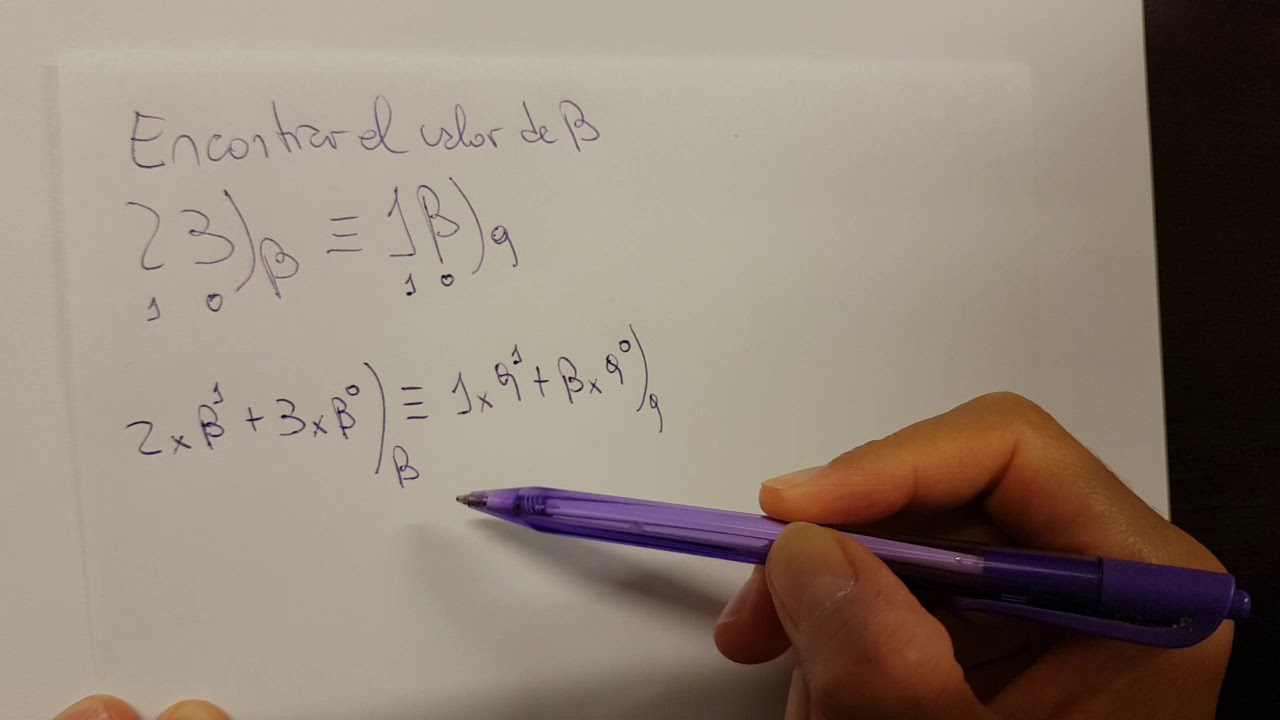 Encontrar el valor de β
23)β ≡ 1β)9
1 0 1 0
2×β¹+3×β⁰)β ≡ 1×9¹+β×9⁰)9